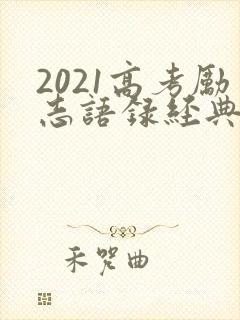 2021高考励
志語录経典
禾哭曲